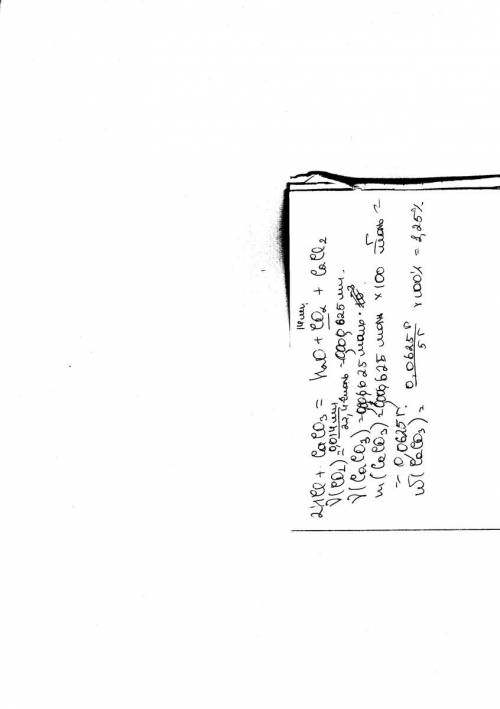 14 мл
2HCl + CaCO3 = H2O + CO2 + CaCl2
ν(CO2) = 0,014 мл / 22,4 моль = 0,000625 мл.
ν(CaCO3) = 0,000625 моль.
m(CaCO3) = 0,000625 моль × 100 г/моль =
= 0,0625 г.
W(CaCO3) = 0,0625 г / 5 г × 100% = 1,25%